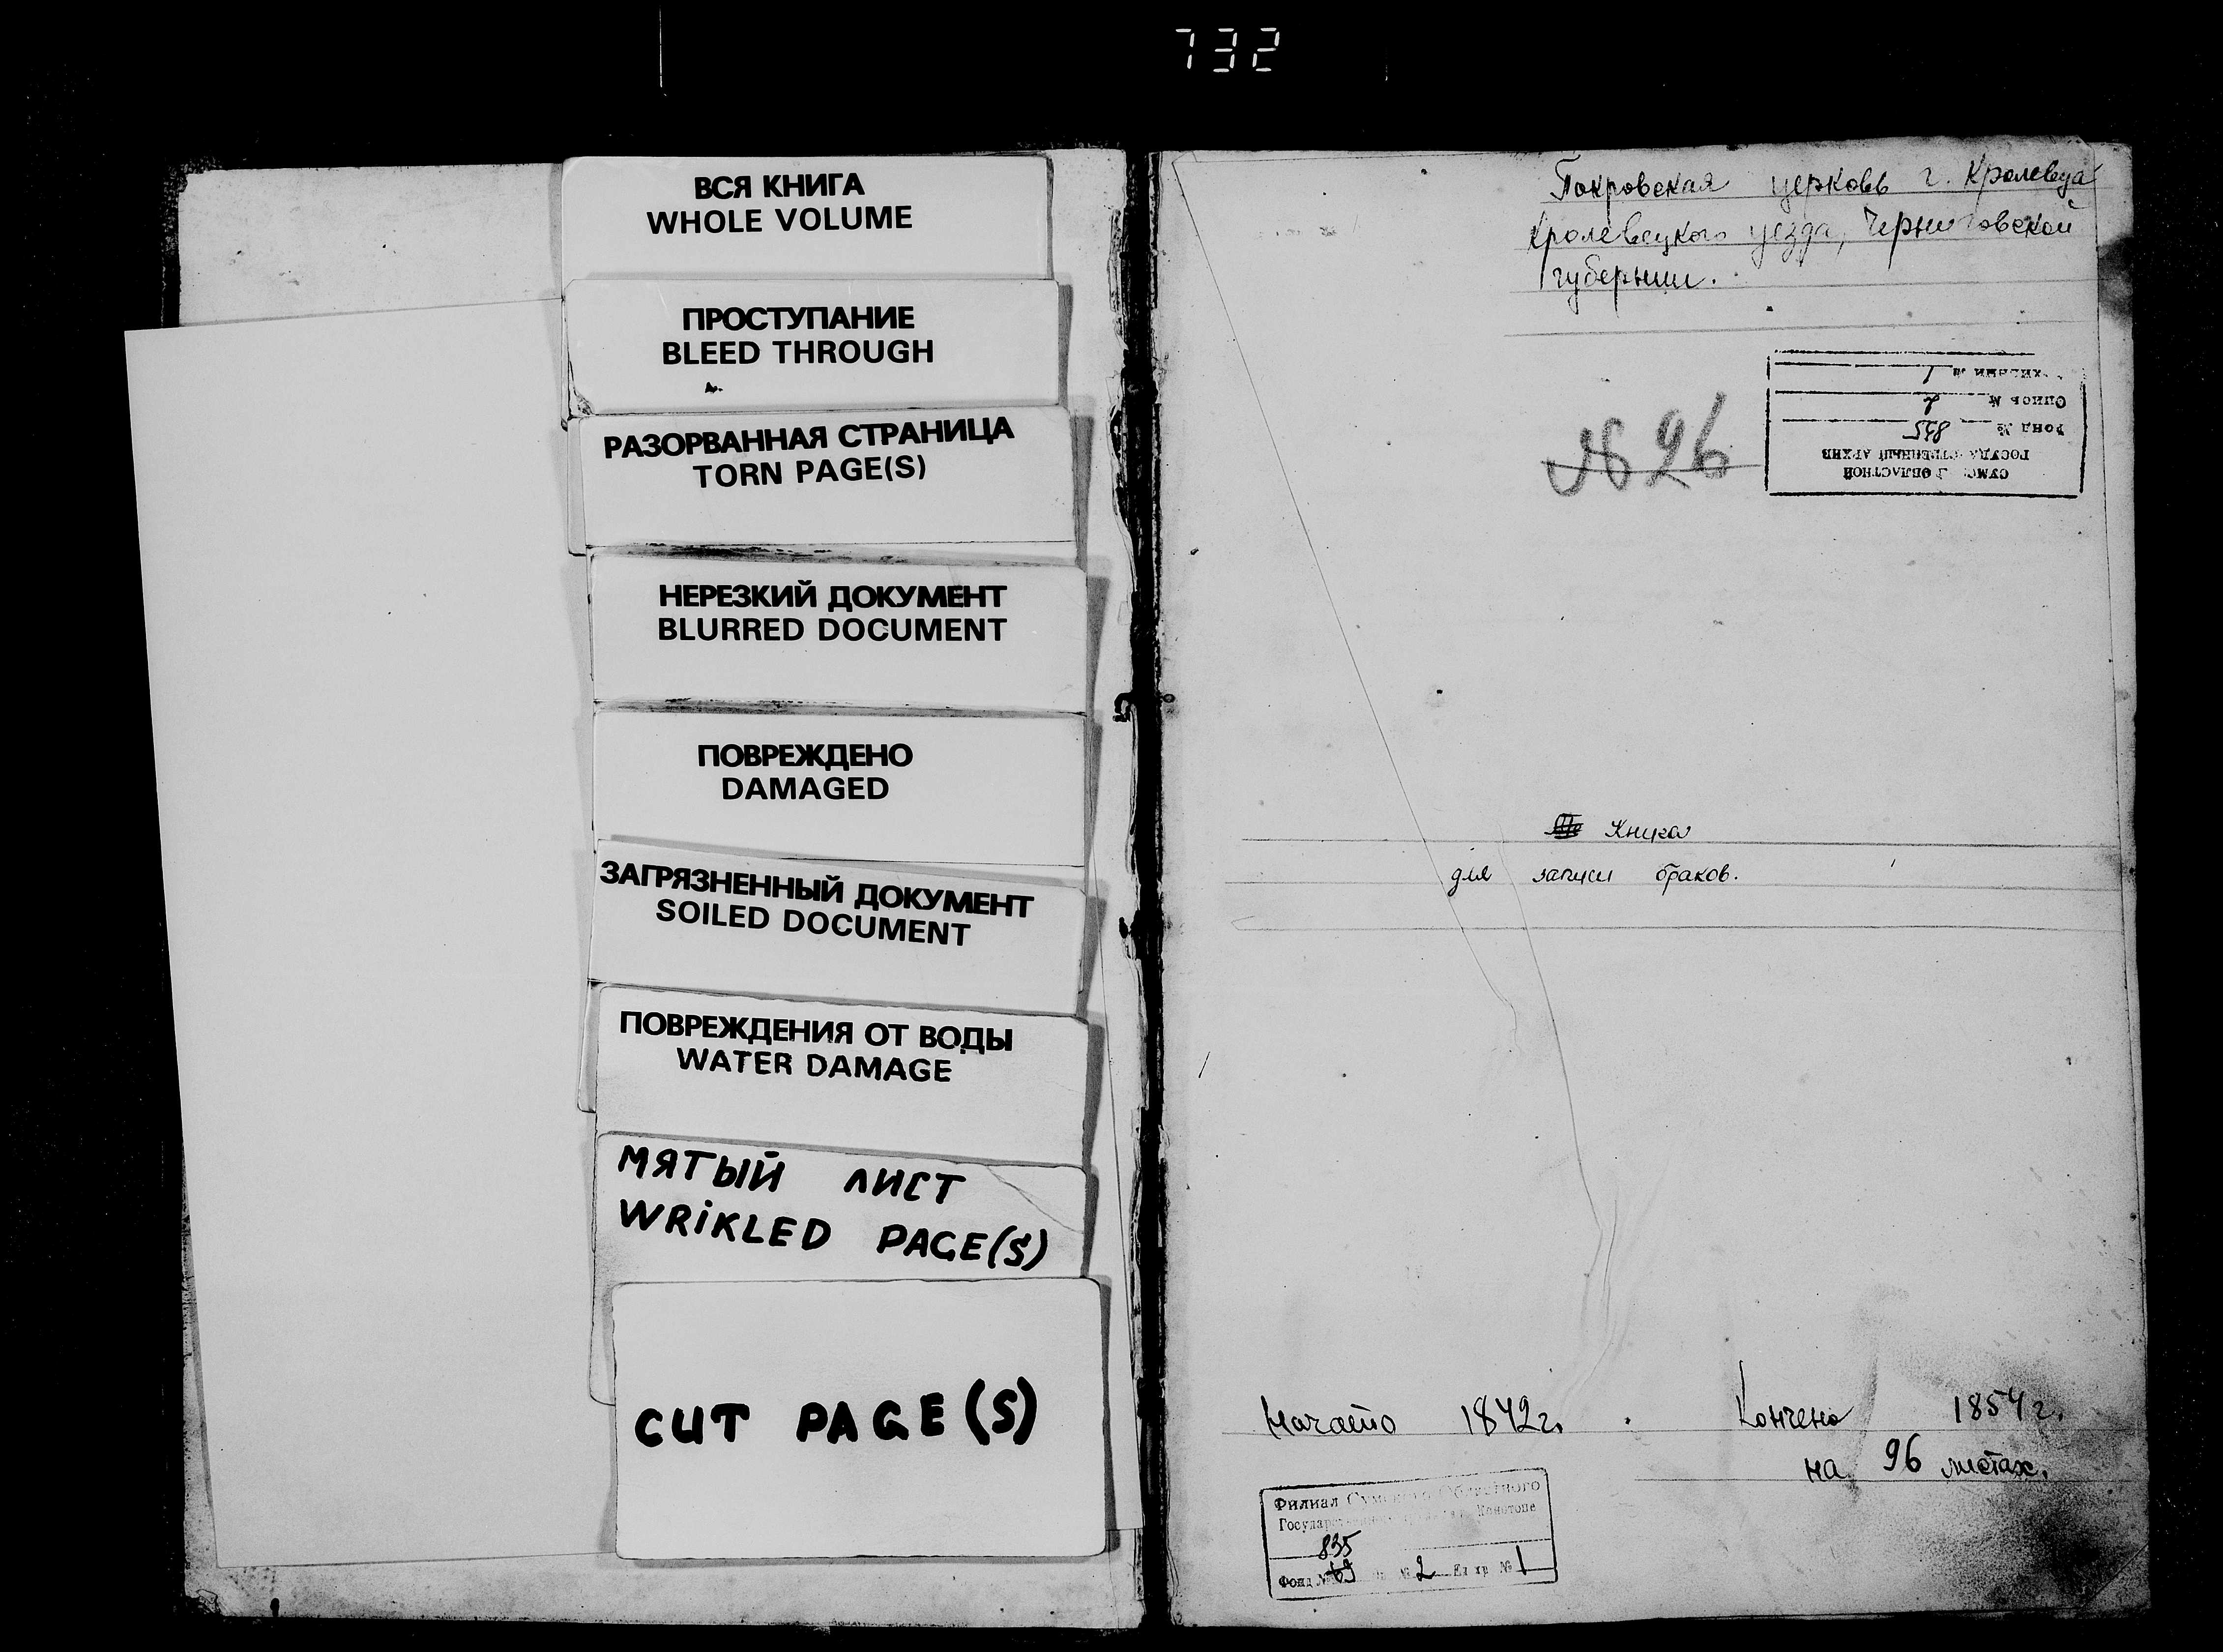 732
ВСЯ КНИГА
WHOLE VOLUME
ПРОСТУПАНИЕ
BLEED THROUGH
РАЗОРВАННАЯ СТРАНИЦА
TORN PAGE(S)
НЕРЕЗКИЙ ДОКУМЕНТ
BLURRED DOCUMENT
ПОВРЕЖДЕНО
DAMAGED
ЗАГРЯЗНЕННЫЙ ДОКУМЕНТ
SOILED DOCUMENT
ПОВРЕЖДЕНИЯ ОТ ВОДЫ
WATER DAMAGE
МЯТЫЙ ЛИСТ
WRIKLED PAGE(S)
CUT PAGE(S)
Покровская церковь г. Кролевца
Кролевецкого уезда, Черниговской
губернии.
№ 26
ОБЛАСТНОЙ
АРХИВ
Фонд № 835
Опись № 2
№ 1
Книга
для записи браков.
Начато 1842 г. Кончено 1854 г.
на 96 листах.
Филиал Областного
Конотопе
835
Фонд № 69 № 2 Ед хр № 1